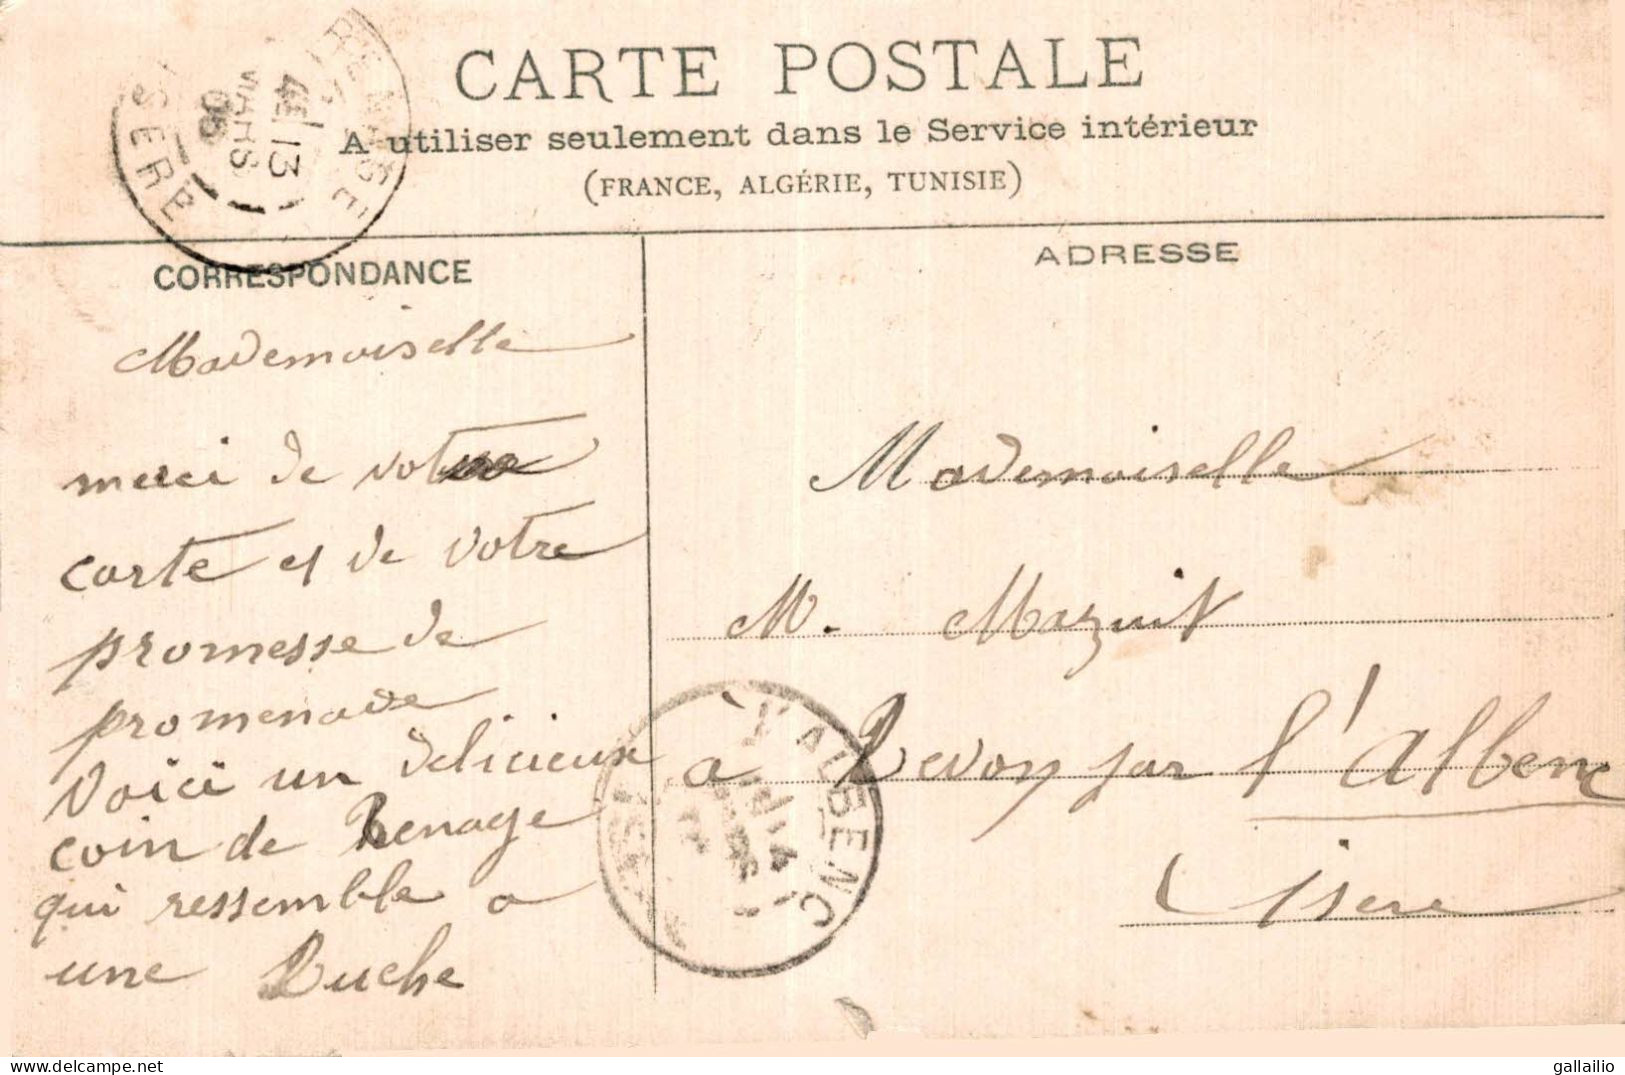 CARTE POSTALE
A utiliser seulement dans le Service intérieur
(FRANCE, ALGÉRIE, TUNISIE)
ISERE
4E 13
MARS
05
CORRESPONDANCE
Mademoiselle
merci de votre
carte et de votre
promesse de
promenade
Voici un délicieux
coin de Renage
qui ressemble a
une Ruche
ADRESSE
Mademoiselle
M. Mazuit
à Revoy par l'Albenc
Isere
L'ALBENC
gallailio